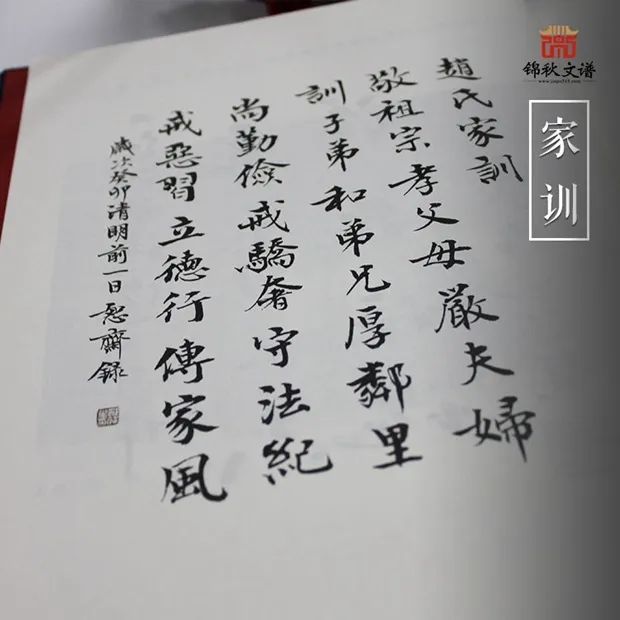 趙氏家訓
敬祖宗孝父母嚴夫婦
訓子弟和弟兄厚鄰里
尚勤儉戒驕奢守法紀
戒惡習立德行傳家風
歲次癸卯清明前一日忍齋錄
錦秋文谱
家训